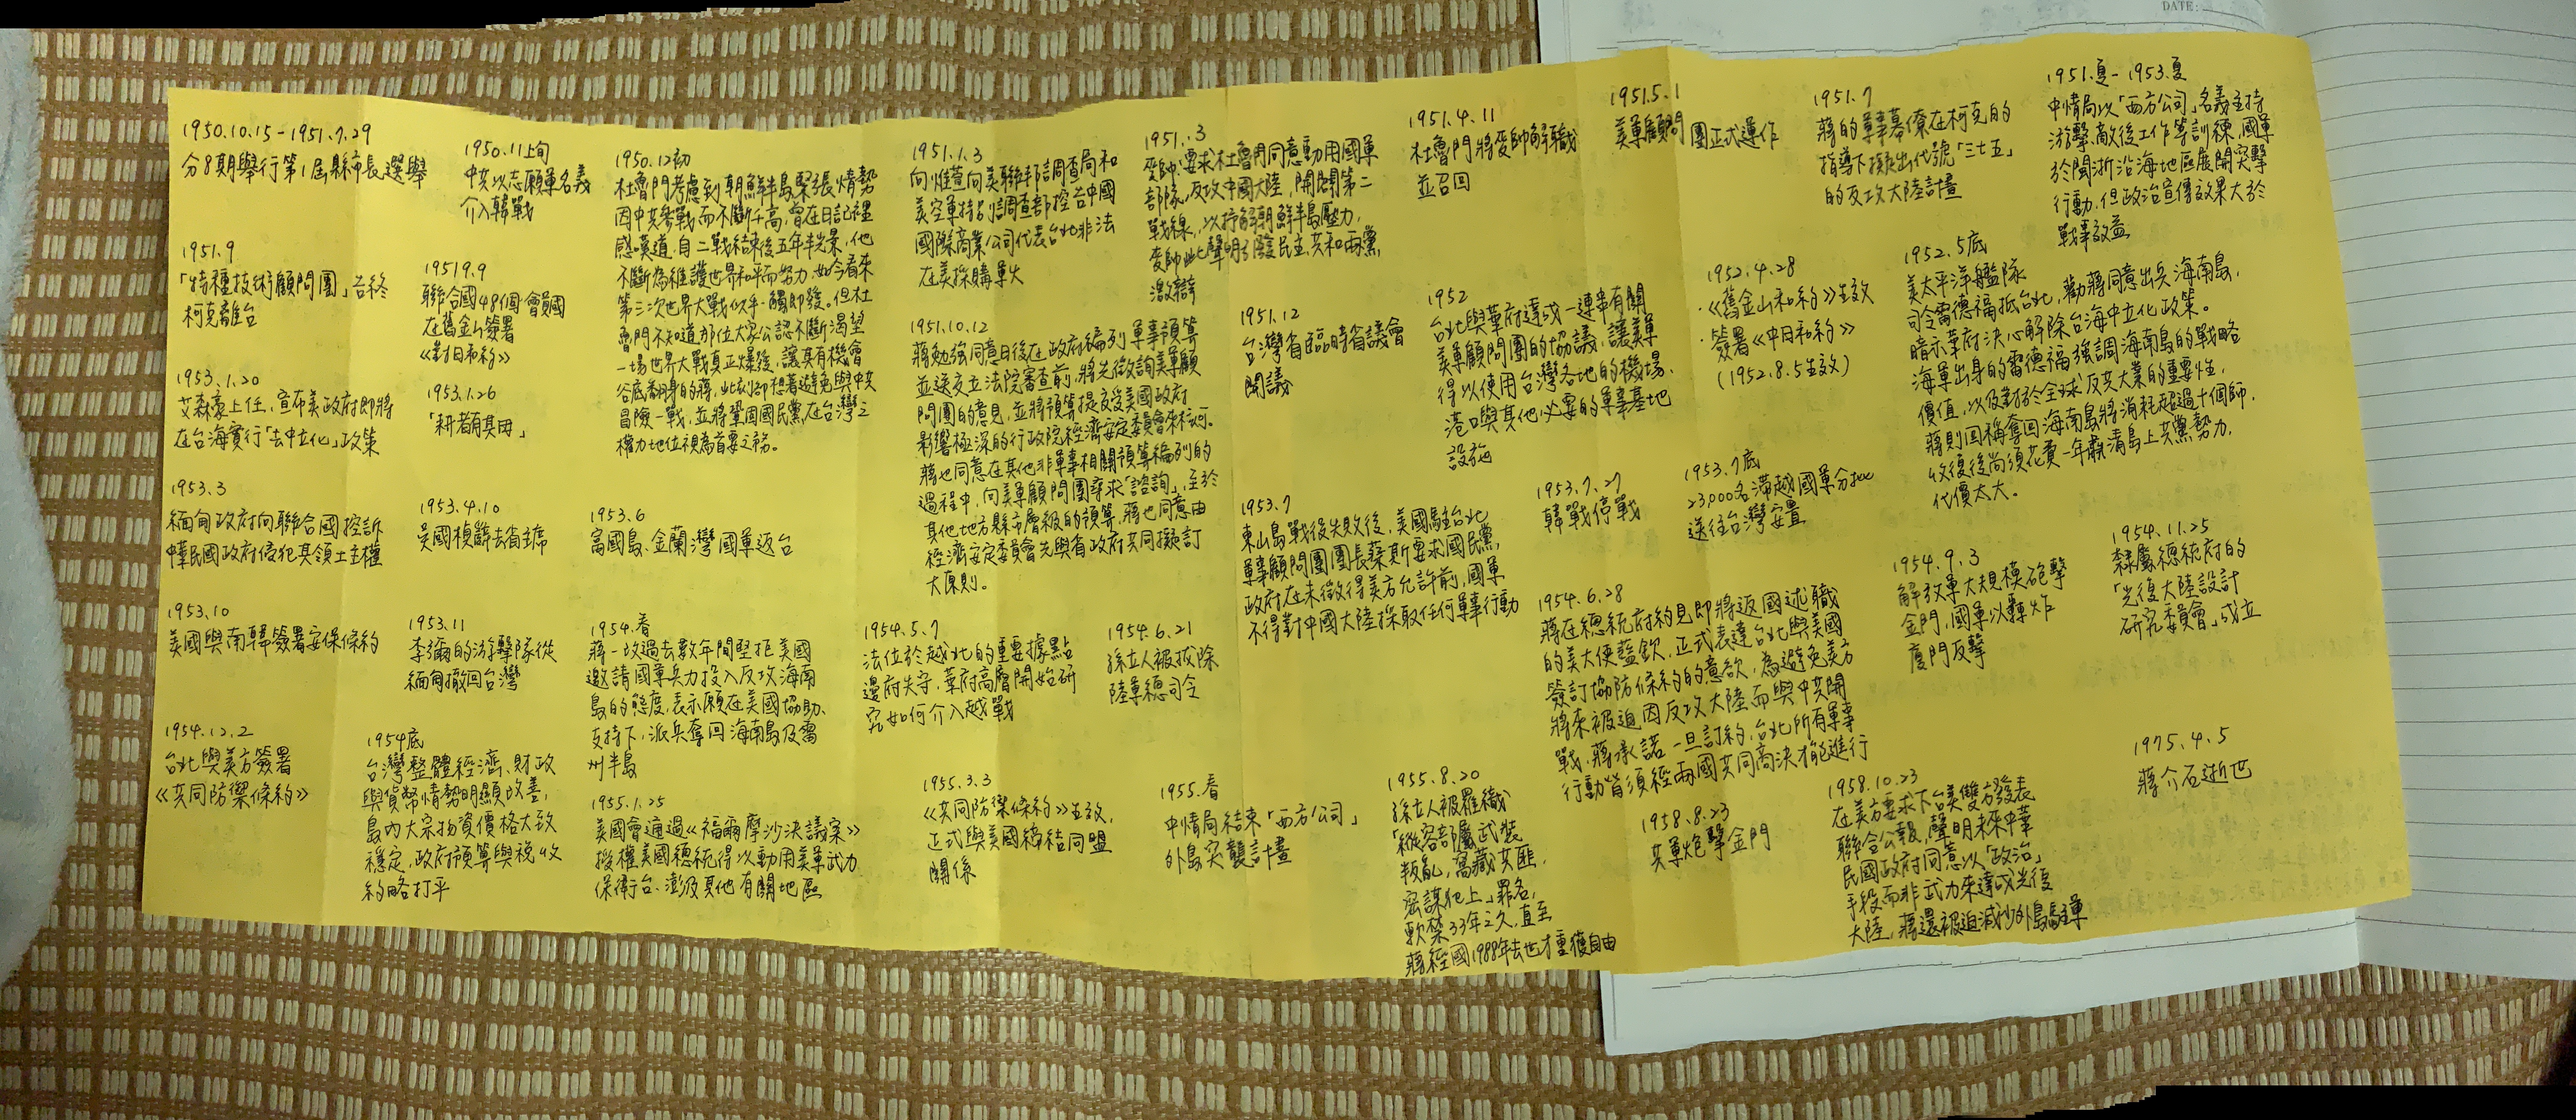 DATE:
1950.10.15-1951.7.29
分8期舉行第1屆縣市長選舉
1950.11上旬
中共以志願軍名義
介入韓戰
1950.12初
杜魯門考慮到朝鮮半島緊張情勢
因中共參戰而不斷升高,曾在日記裡
感嘆道,自二戰結束後五年半光景,他
不斷為維護世界和平而努力,如今看來
第三次世界大戰似乎一觸即發。但杜
魯門不知道那位大家公認不斷渴望
一場世界大戰真正爆發,讓其有機會
谷底翻身的蔣,此刻卻想著避免與中共
冒險一戰,並將鞏固國民黨在台灣之
權力地位視為首要之務。
1951.1.3
向惟萱向美聯邦調查局和
美空軍特別調查部控告中國
國際商業公司代表台北非法
在美採購軍火
1951.3
麥帥要求杜魯門同意動用國軍
部隊,反攻中國大陸,開闢第二
戰線,以抒解朝鮮半島壓力,
麥帥此聲明引發民主、共和兩黨
激辯
1951.4.11
杜魯門將麥帥解職
並召回
1951.5.1
美軍顧問團正式運作
1951.7
蔣的軍事幕僚在柯克的
指導下擬出代號「三七五」
的反攻大陸計畫
1951.夏-1953.夏
中情局以「西方公司」名義主持
游擊、敵後工作等訓練,國軍
於閩浙沿海地區展開突擊
行動,但政治宣傳效果大於
戰事效益
1951.9
「特種技術顧問團」告終
柯克離台
1951.9.9
聯合國48個會員國
在舊金山簽署
《對日和約》
1951.10.12
蔣勉強同意日後在政府編列軍事預算
並送交立法院審查前,將先徵詢美軍顧
問團的意見,並將預算提交受美國政府
影響極深的行政院經濟安定委員會來核可。
蔣也同意在其他非軍事相關預算編列的
過程中,向美軍顧問團尋求「諮詢」,至於
其他地方縣市層級的預算,蔣也同意由
經濟安定委員會先與省政府共同擬訂
大原則。
1951.12
台灣省臨時省議會
開議
1952
台北與華府達成一連串有關
美軍顧問團的協議,讓美軍
得以使用台灣各地的機場、
港口與其他必要的軍事基地
設施
1952.4.28
·《舊金山和約》生效
·簽署《中日和約》
(1952.8.5生效)
1952.5底
美太平洋艦隊
司令雷德福抵台北,勸蔣同意出兵海南島,
暗示華府決心解除台海中立化政策。
海軍出身的雷德福強調海南島的戰略
價值,以及對於全球反共大業的重要性,
蔣則回稱奪回海南島將消耗超過十個師,
收復後尚須花費一年肅清島上共黨勢力,
代價太大。
1953.1.20
艾森豪上任,宣布美政府即將
在台海實行「去中立化」政策
1953.1.26
「耕者有其田」
1953.3
緬甸政府向聯合國控訴
中華民國政府侵犯其領土主權
1953.4.10
吳國楨辭去省主席
1953.6
富國島、金蘭灣國軍返台
1953.7
東山島戰役失敗後,美國駐台北
軍事顧問團團長蔡斯要求國民黨
政府在未徵得美方允許前,國軍
不得對中國大陸採取任何軍事行動
1953.7.27
韓戰停戰
1953.7底
23,000名滯越國軍分批
送往台灣安置
1953.10
美國與南韓簽署安保條約
1953.11
李彌的游擊隊從
緬甸撤回台灣
1954.春
蔣一改過去數年間堅拒美國
邀請國軍兵力投入反攻海南
島的態度,表示願在美國協助、
支持下,派兵奪回海南島及雷
州半島
1954.5.7
法位於越北的重要據點
邊府失守,華府高層開始研
究如何介入越戰
1954.6.21
孫立人被拔除
陸軍總司令
1954.6.28
蔣在總統府約見即將返國述職
的美大使藍欽,正式表達台北與美國
簽訂協防條約的意欲,為避免美方
將來被迫因反攻大陸而與中共開
戰,蔣承諾一旦訂約,台北所有軍事
行動皆須經兩國共同商決才能進行
1954.9.3
解放軍大規模砲擊
金門,國軍以轟炸
廈門反擊
1954.11.25
隸屬總統府的
「光復大陸設計
研究委員會」成立
1954.12.2
台北與美方簽署
《共同防禦條約》
1954底
台灣整體經濟、財政
與貨幣情勢明顯改善,
島內大宗物資價格大致
穩定,政府預算與稅收
約略打平
1955.1.25
美國會通過《福爾摩沙決議案》
授權美國總統得以動用美軍武力
保衛台、澎及其他有關地區
1955.3.3
《共同防禦條約》生效,
正式與美國締結同盟
關係
1955.春
中情局結束「西方公司」
外島突襲計畫
1955.8.20
孫立人被羅織
「縱容部屬武裝
叛亂,窩藏共匪,
密謀犯上」罪名,
軟禁33年之久,直至
蔣經國1988年去世才重獲自由
1958.8.23
共軍炮擊金門
1958.10.23
在美方要求下台美雙方發表
聯合公報,聲明未來中華
民國政府同意以「政治」
手段而非武力來達成光復
大陸,蔣還被迫減少外島駐軍
1975.4.5
蔣介石逝世